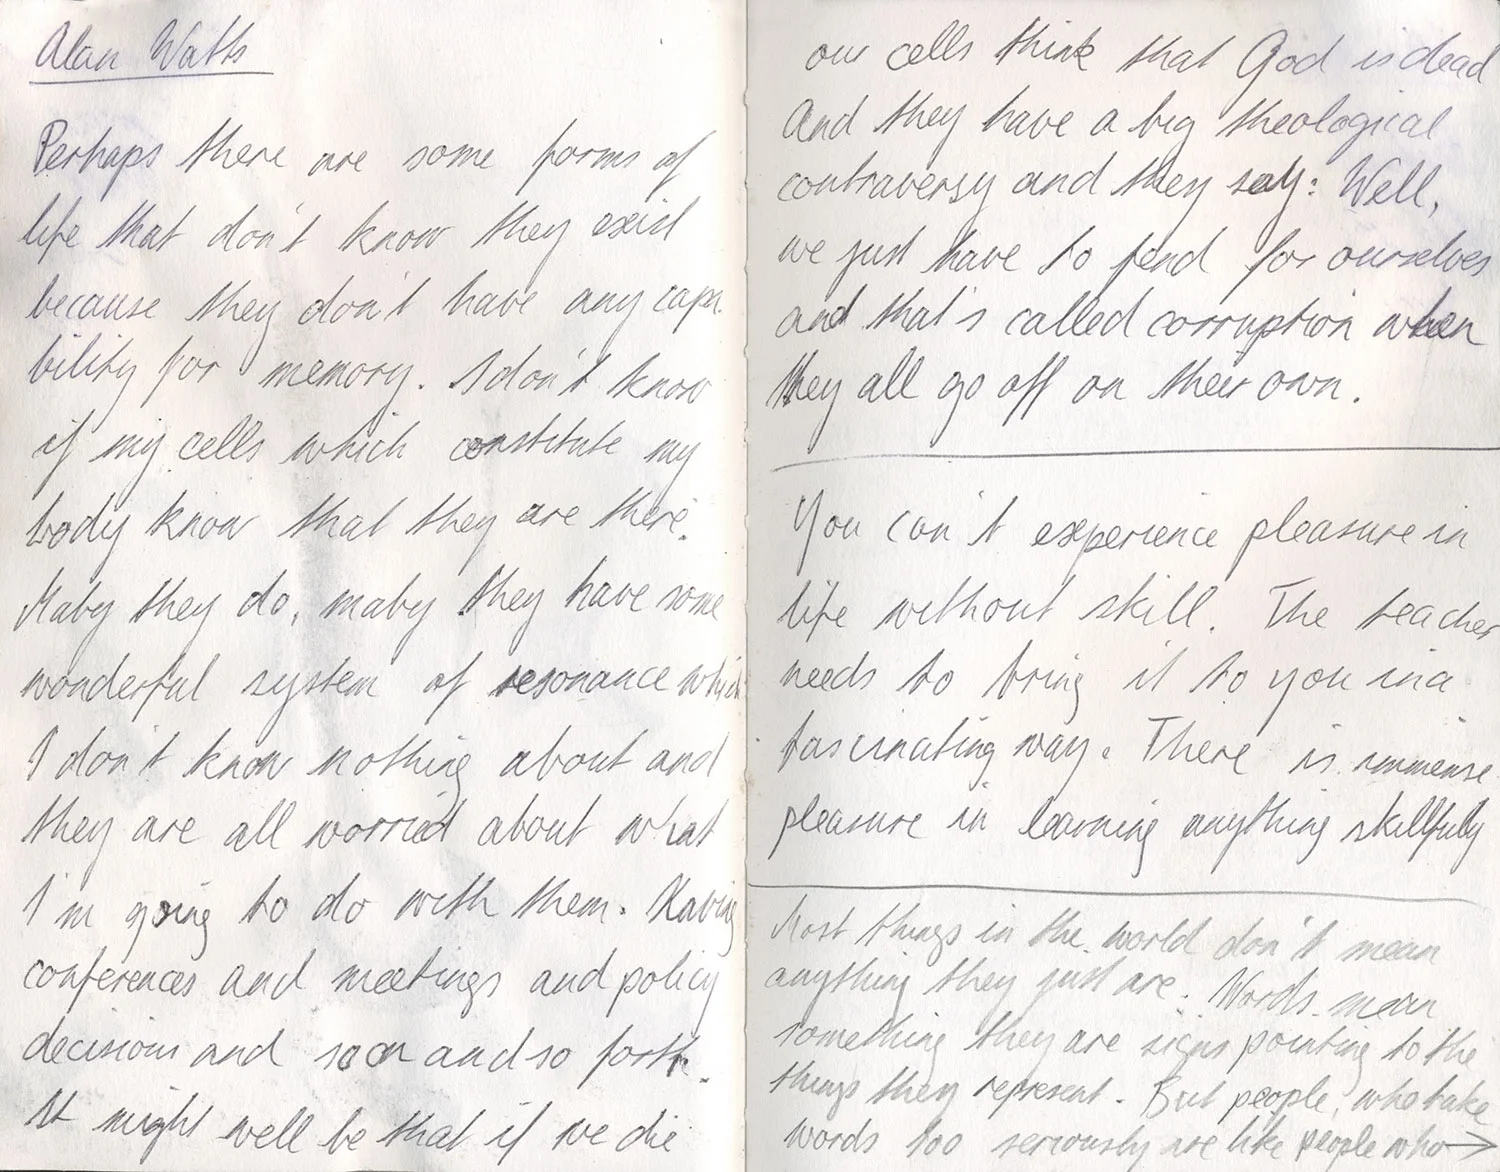 Alan Watts
Perhaps there are some forms of
life that don't know they exist
because they don't have any capa
bility for memory. I don't know
if my cells which constitute my
body know that they are there.
Maby they do, maby they have some
wonderful system of resonance which
I don't know nothing about and
they are all worried about what
I'm going to do with them. Having
conferences and meetings and policy
decisions and so on and so forth.
It might well be that if we die
our cells think that God is dead
And they have a big theological
contraversy and they say: Well,
we just have to fend for ourselves
and that's called corruption when
they all go off on their own.
You can't experience pleasure in
life without skill. The teacher
needs to bring it to you in a
fascinating way. There is immense
pleasure in learning anything skillfuly
Most things in the world don't mean
anything they just are. Words mean
something they are signs pointing to the
things they represent. But people, who take
words too seriously are like people who →